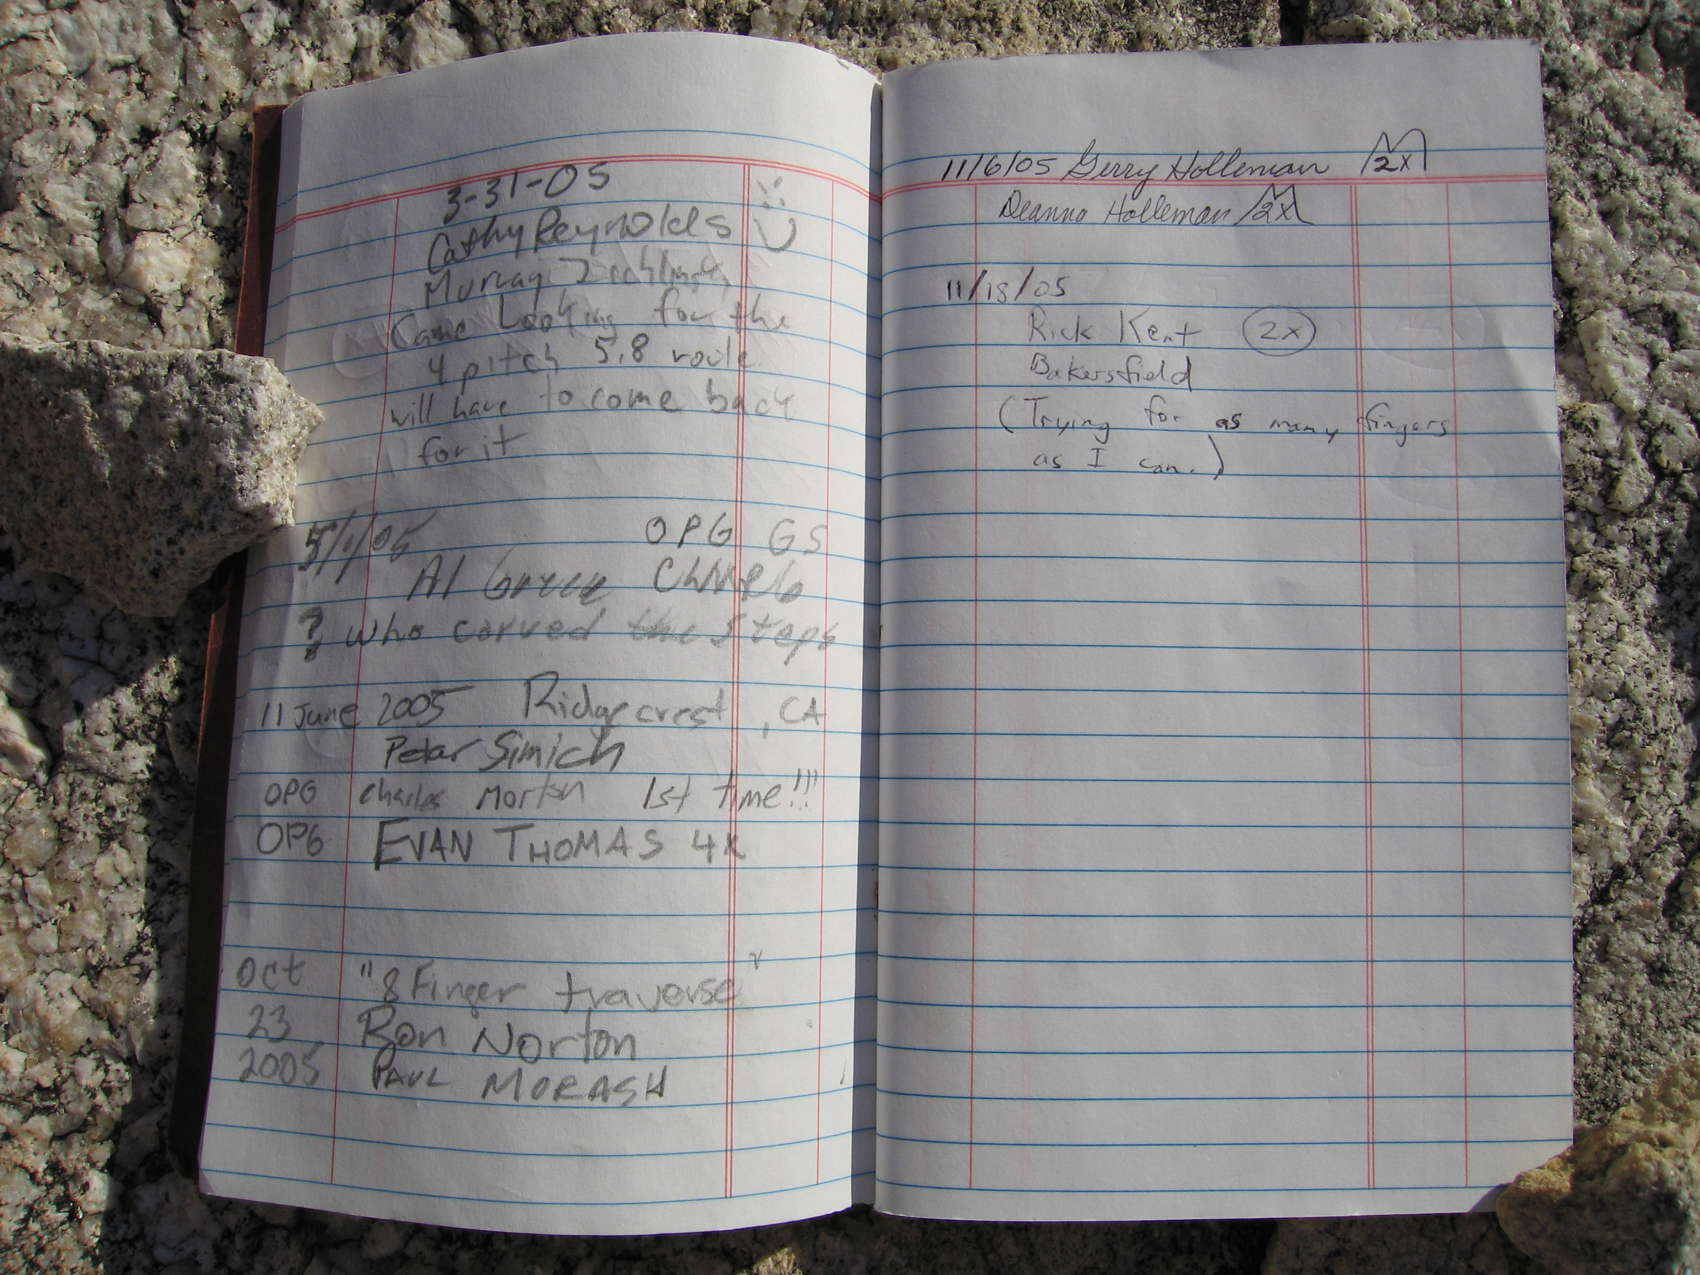 3-31-05
Cathy Reynolds
Murray
Came Looking for the
4 pitch 5.8 route.
will have to come back
for it
5/1/05 OPG GS
Al Green Climb
? who carved the steps
11 June 2005 Ridgecrest, CA
Petar Simich
OPG Charles Morton 1st time!!!
OPG EVAN THOMAS 4X
Oct "8 Finger traverse"
23 Ron Norton
2005 PAUL MORASH
11/6/05 Gerry Holleman 2x
Deanna Holleman 2x
11/18/05
Rick Kent 2x
Bakersfield
(Trying for as many fingers
as I can.)